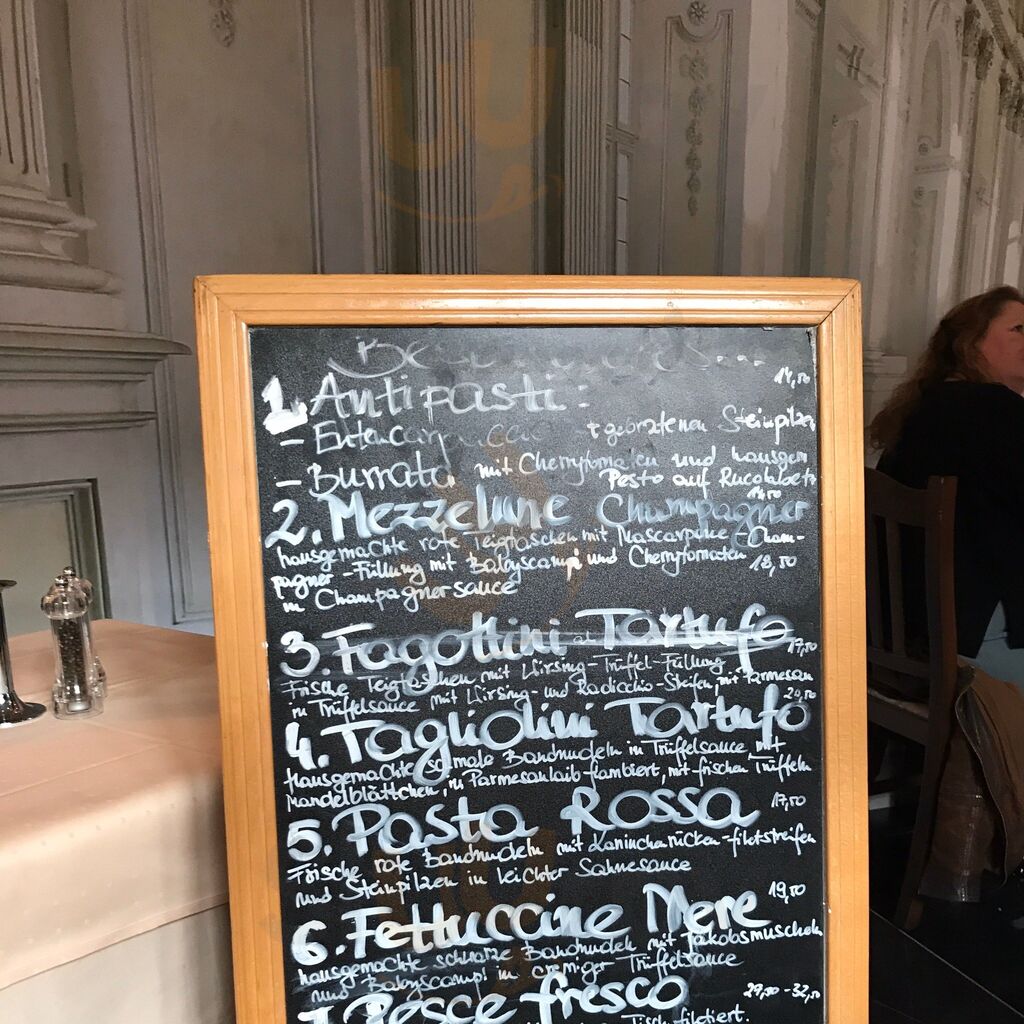 1. Antipasti: 14,50
- Entencarpaccio gebratenen Steinpilzen
- Burrata mit Cherrytomaten und hausgem
Pesto auf Rucolabett
14,50
2. Mezzelune Champagner
hausgemachte rote Teigtaschen mit Mascarpone-Cham-
pagner-Füllung mit Babyscampi und Cherrytomaten 18,50
in Champagnersauce
3. Fagottini al Tartufo 17,50
Frische Teigtaschen mit Wirsing-Trüffel-Füllung
in Trüffelsauce mit Wirsing- und Radicchio-Steifen, mit Parmesan
4. Tagliolini Tartufo
hausgemachte schmale Bandnudeln in Trüffelsauce, mit
Mandelblättchen, in Parmesanlaib flambiert, mit frischen Trüffeln
5. Pasta Rossa 17,50
Frische rote Bandnudeln mit Kaninchenrücken-filetstreifen
und Steinpilzen in leichter Sahnesauce
6. Fettuccine Nere 19,50
hausgemachte schwarze Bandnudeln mit Jakobsmuscheln
und Babyscampi in cremiger Trüffelsauce
7. Pesce fresco 29,50-32,50
Tisch filetiert.